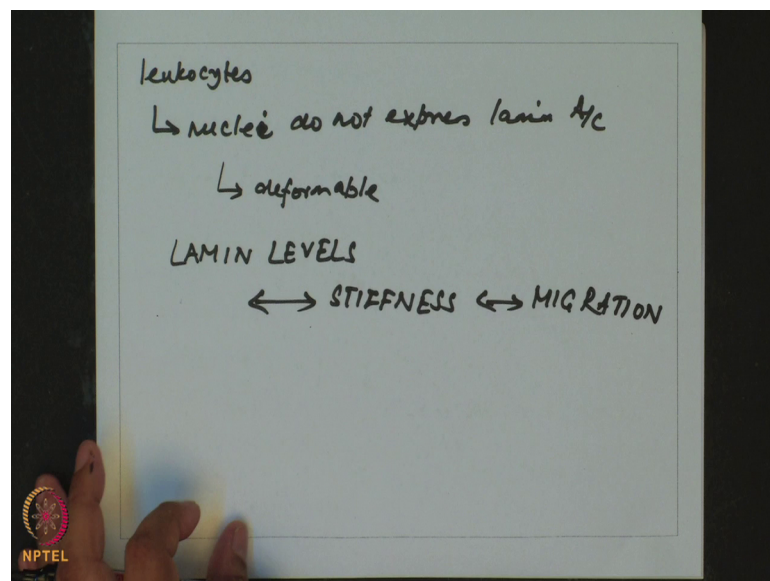 leukocytes
↳ nuclei do not expres lamin A/C
↳ deformable
LAMIN LEVELS
↔ STIFFNESS ↔ MIGRATION
NPTEL